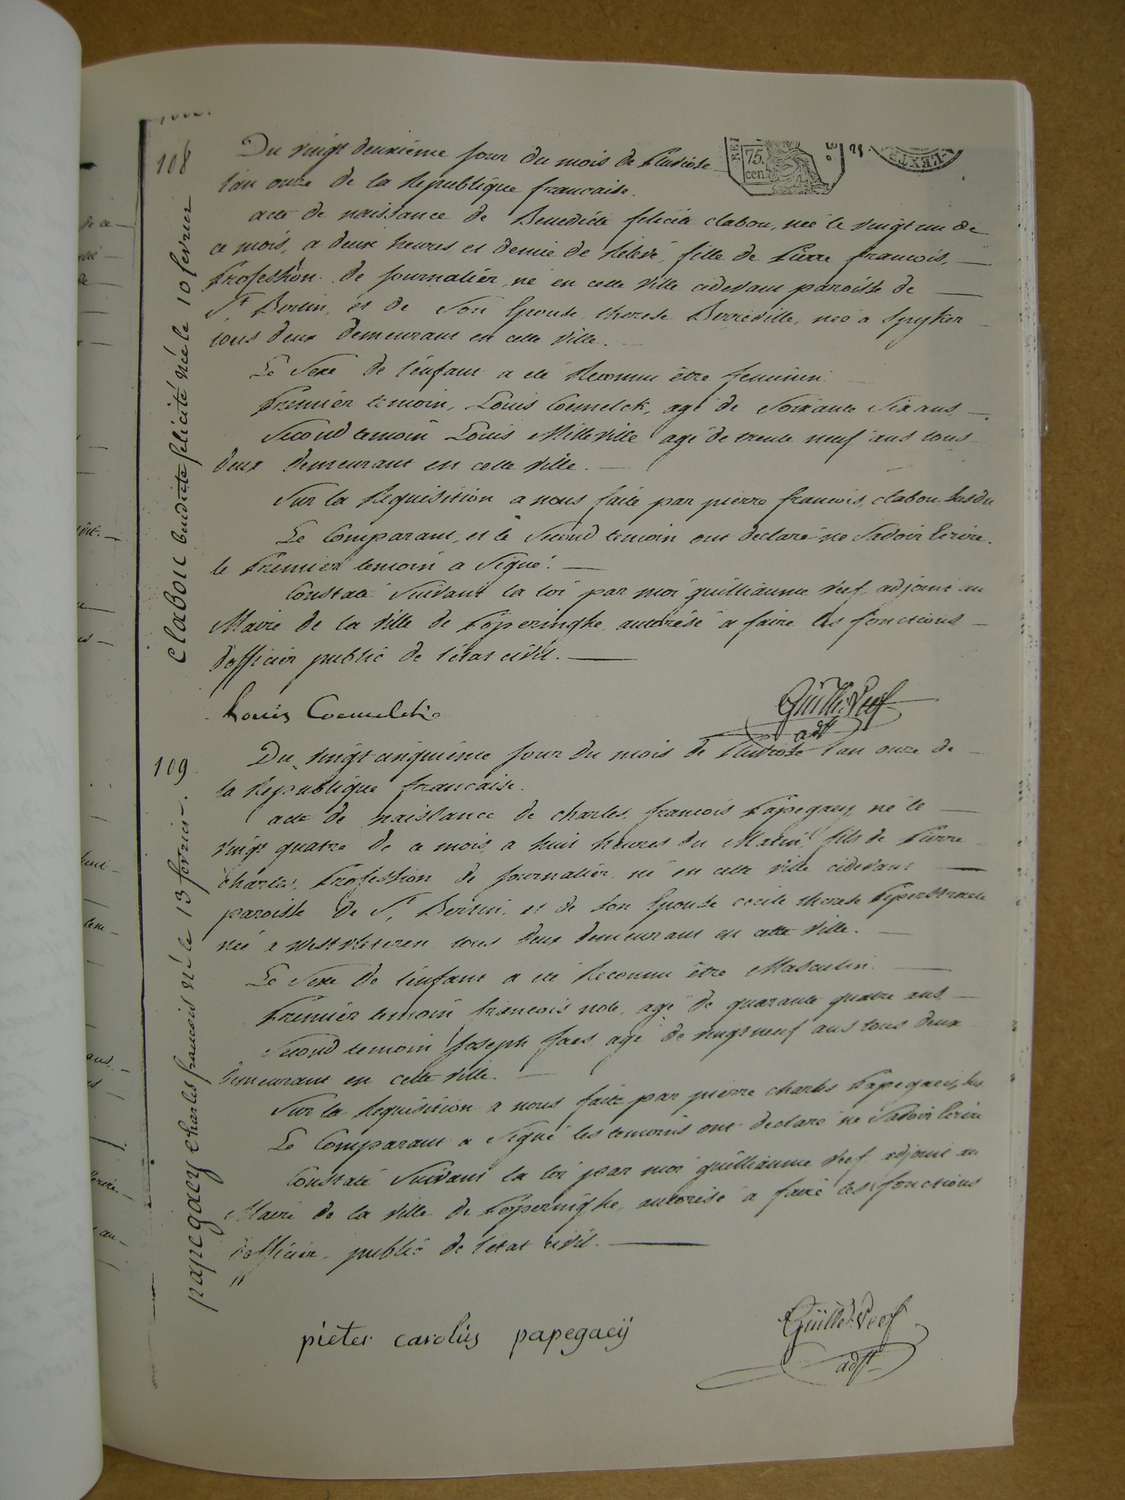 108
Du vingt deuxième jour du mois de Pluviose
l'an onze de la République française.
acte de naissance de Benedicte felicité clabou, née le vingt un de
ce mois, a deux heures et demie de relevé, fille de Pierre francois,
Profession de journalier, né en cette ville cidevant paroisse de
St Bertin, et de Son Epouse therese Berreville, née a Spyker
tous deux demeurant en cette ville.
Le Sexe de l'enfant a été Reconnu être feminin.
Premier temoin, Louis Coemelck, agé de Soixante Six ans
Second temoin Louis Milleville agé de trente neuf ans tous
deux demeurant en cette ville.
Sur la Requisition a nous faite par pierre francois clabou Susdu
Le Comparant, et le Second temoin ont declaré ne Savoir Ecrire.
le Premier temoin a Signé.
Constaté Suivant la loi par moi guilliaume Reef, adjoint au
Maire de la ville de Poperinghe autorisé a faire les fonctions
d'officier public de l'état civil.
Clabou benedicte felicité née le 10 fevrier
Louis Coemelck
Guill. Reef
adjt
109
Du vingt cinquieme jour du mois de Pluviose l'an onze de
la République francaise.
acte de naissance de charles francois Papegaey né le
vingt quatre de ce mois a huit heures du Matin fils de Pierre
charles, Profession de journalier, né en cette ville cidevant
paroisse de St Bertin, et de Son Epouse cecile therese
née a westvleteren tous deux demeurant en cette ville.
Le Sexe de l'enfant a été Reconnu être Masculin.
Premier temoin francois nole, agé de quarante quatre ans
Second temoin Joseph faes, agé de vingt neuf ans tous deux
demeurant en cette ville.
Sur la Requisition a nous faite par pierre charles Papegaeij
Le Comparant a Signé les temoins ont declaré ne Savoir Ecrire
Constaté Suivant la loi par moi guilliaume Reef adjoint au
Maire de la ville de Poperinghe, autorisé a faire les fonctions
d'officier public de l'état civil.
papegaey Charles francois né le 13 février.
pieter carolus papegaeÿ
Guill. Reef
adjt
75
cen